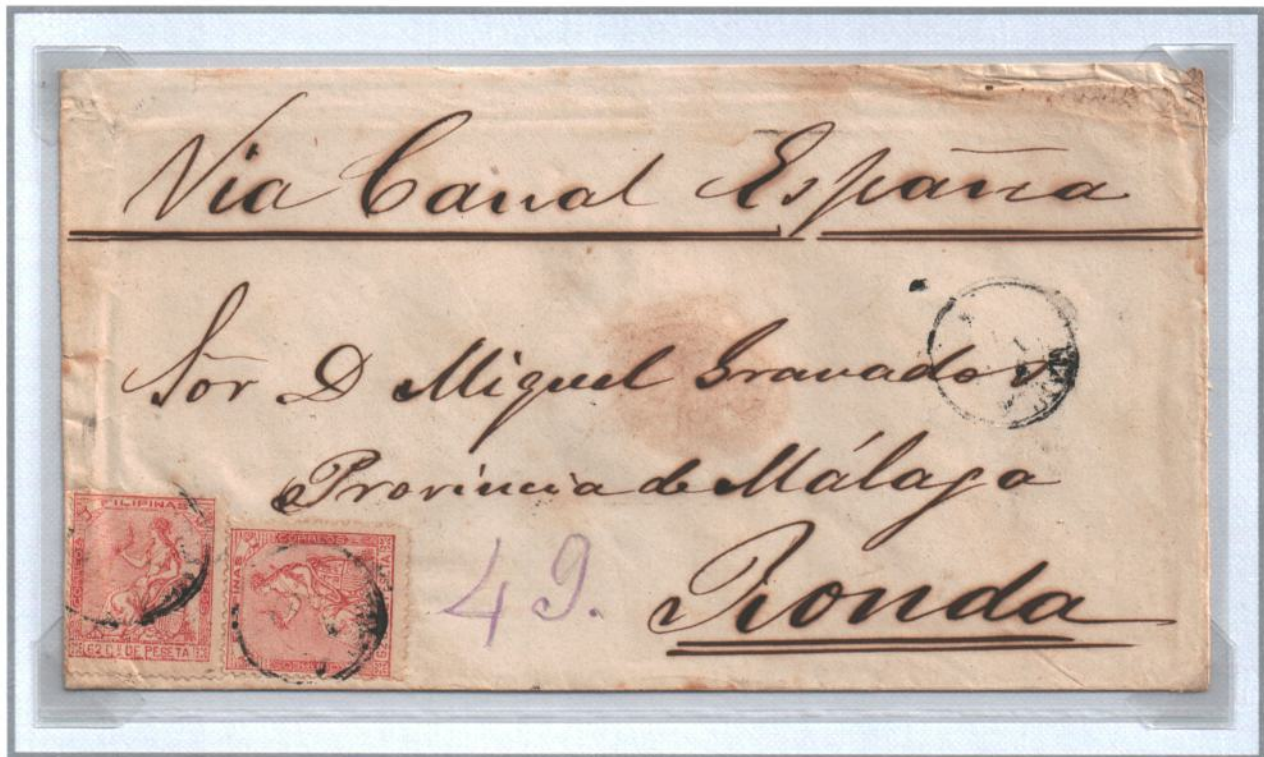 Via Canal España
Sor D Miguel Granados
Provincia de Málaga
Ronda
49.
FILIPINAS
CORREOS
62 Cs DE PESETA
CORREOS